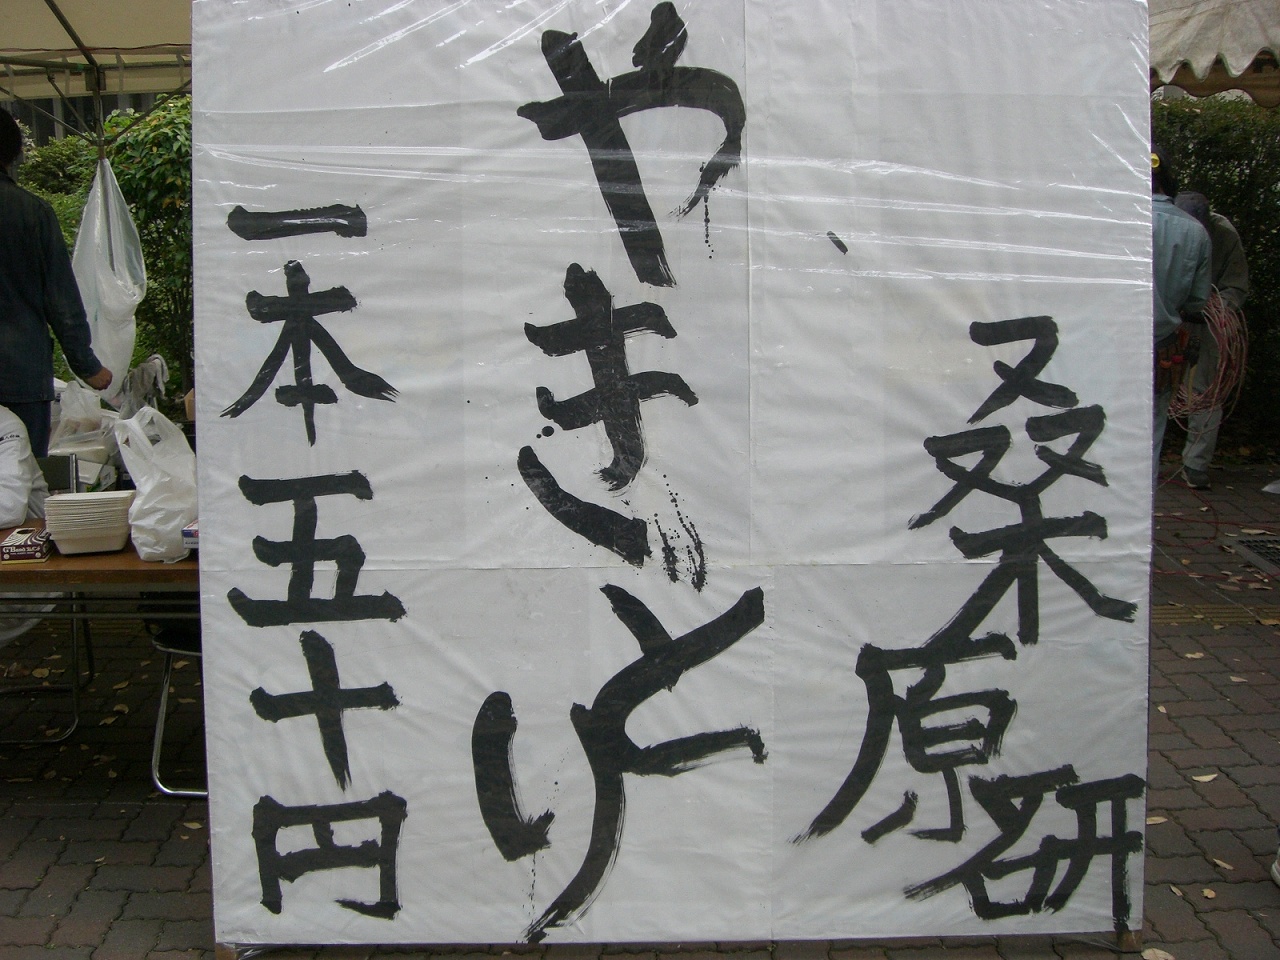 桑原研
やきとり
一本五十円